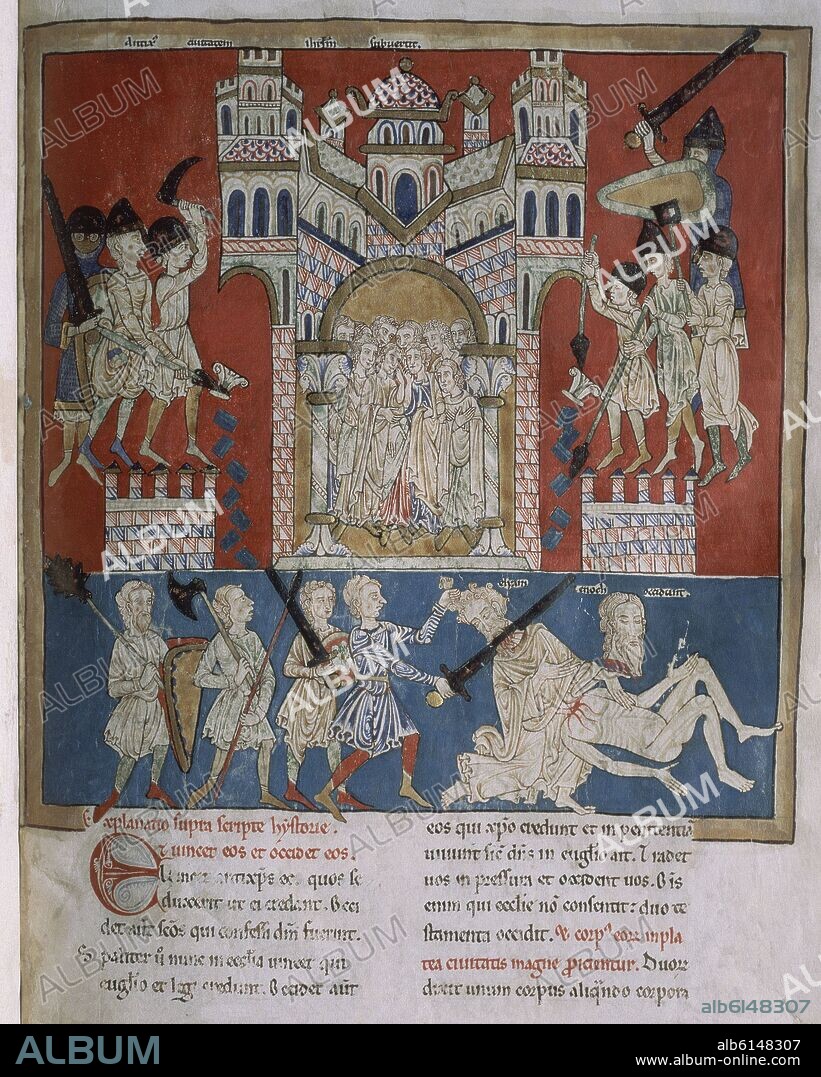 Antixp̄s civitatem ihrlm̄ subvertit.
elyam enoch
Explanatio supra scripte hystorie.
Et vincet eos et occidet eos.
antixp̄s quos se
duxerit ut ei credant. Occi
det aut̄ sc̄os qui confessi dn̄m fuerint.
Spaliter nunc in ecclīa vincet qui
euglīo et legi credunt. Occidet aut̄
eos qui xp̄o credunt et in penitentia
vivunt sic̄ dn̄s in euglīo ait. Tradet
vos in pressura et occident vos. Oīs
enim qui ecclīe non̄ consentit: duo te
stamenta occidit. Et corpa eorr̄ in pla
tea civitatis magne proicientur. Duorr̄
dicit unum corpus aliqn̄do corpora
ALBUM
alb6148307
ALBUM
alb6148307
www.album-online.com